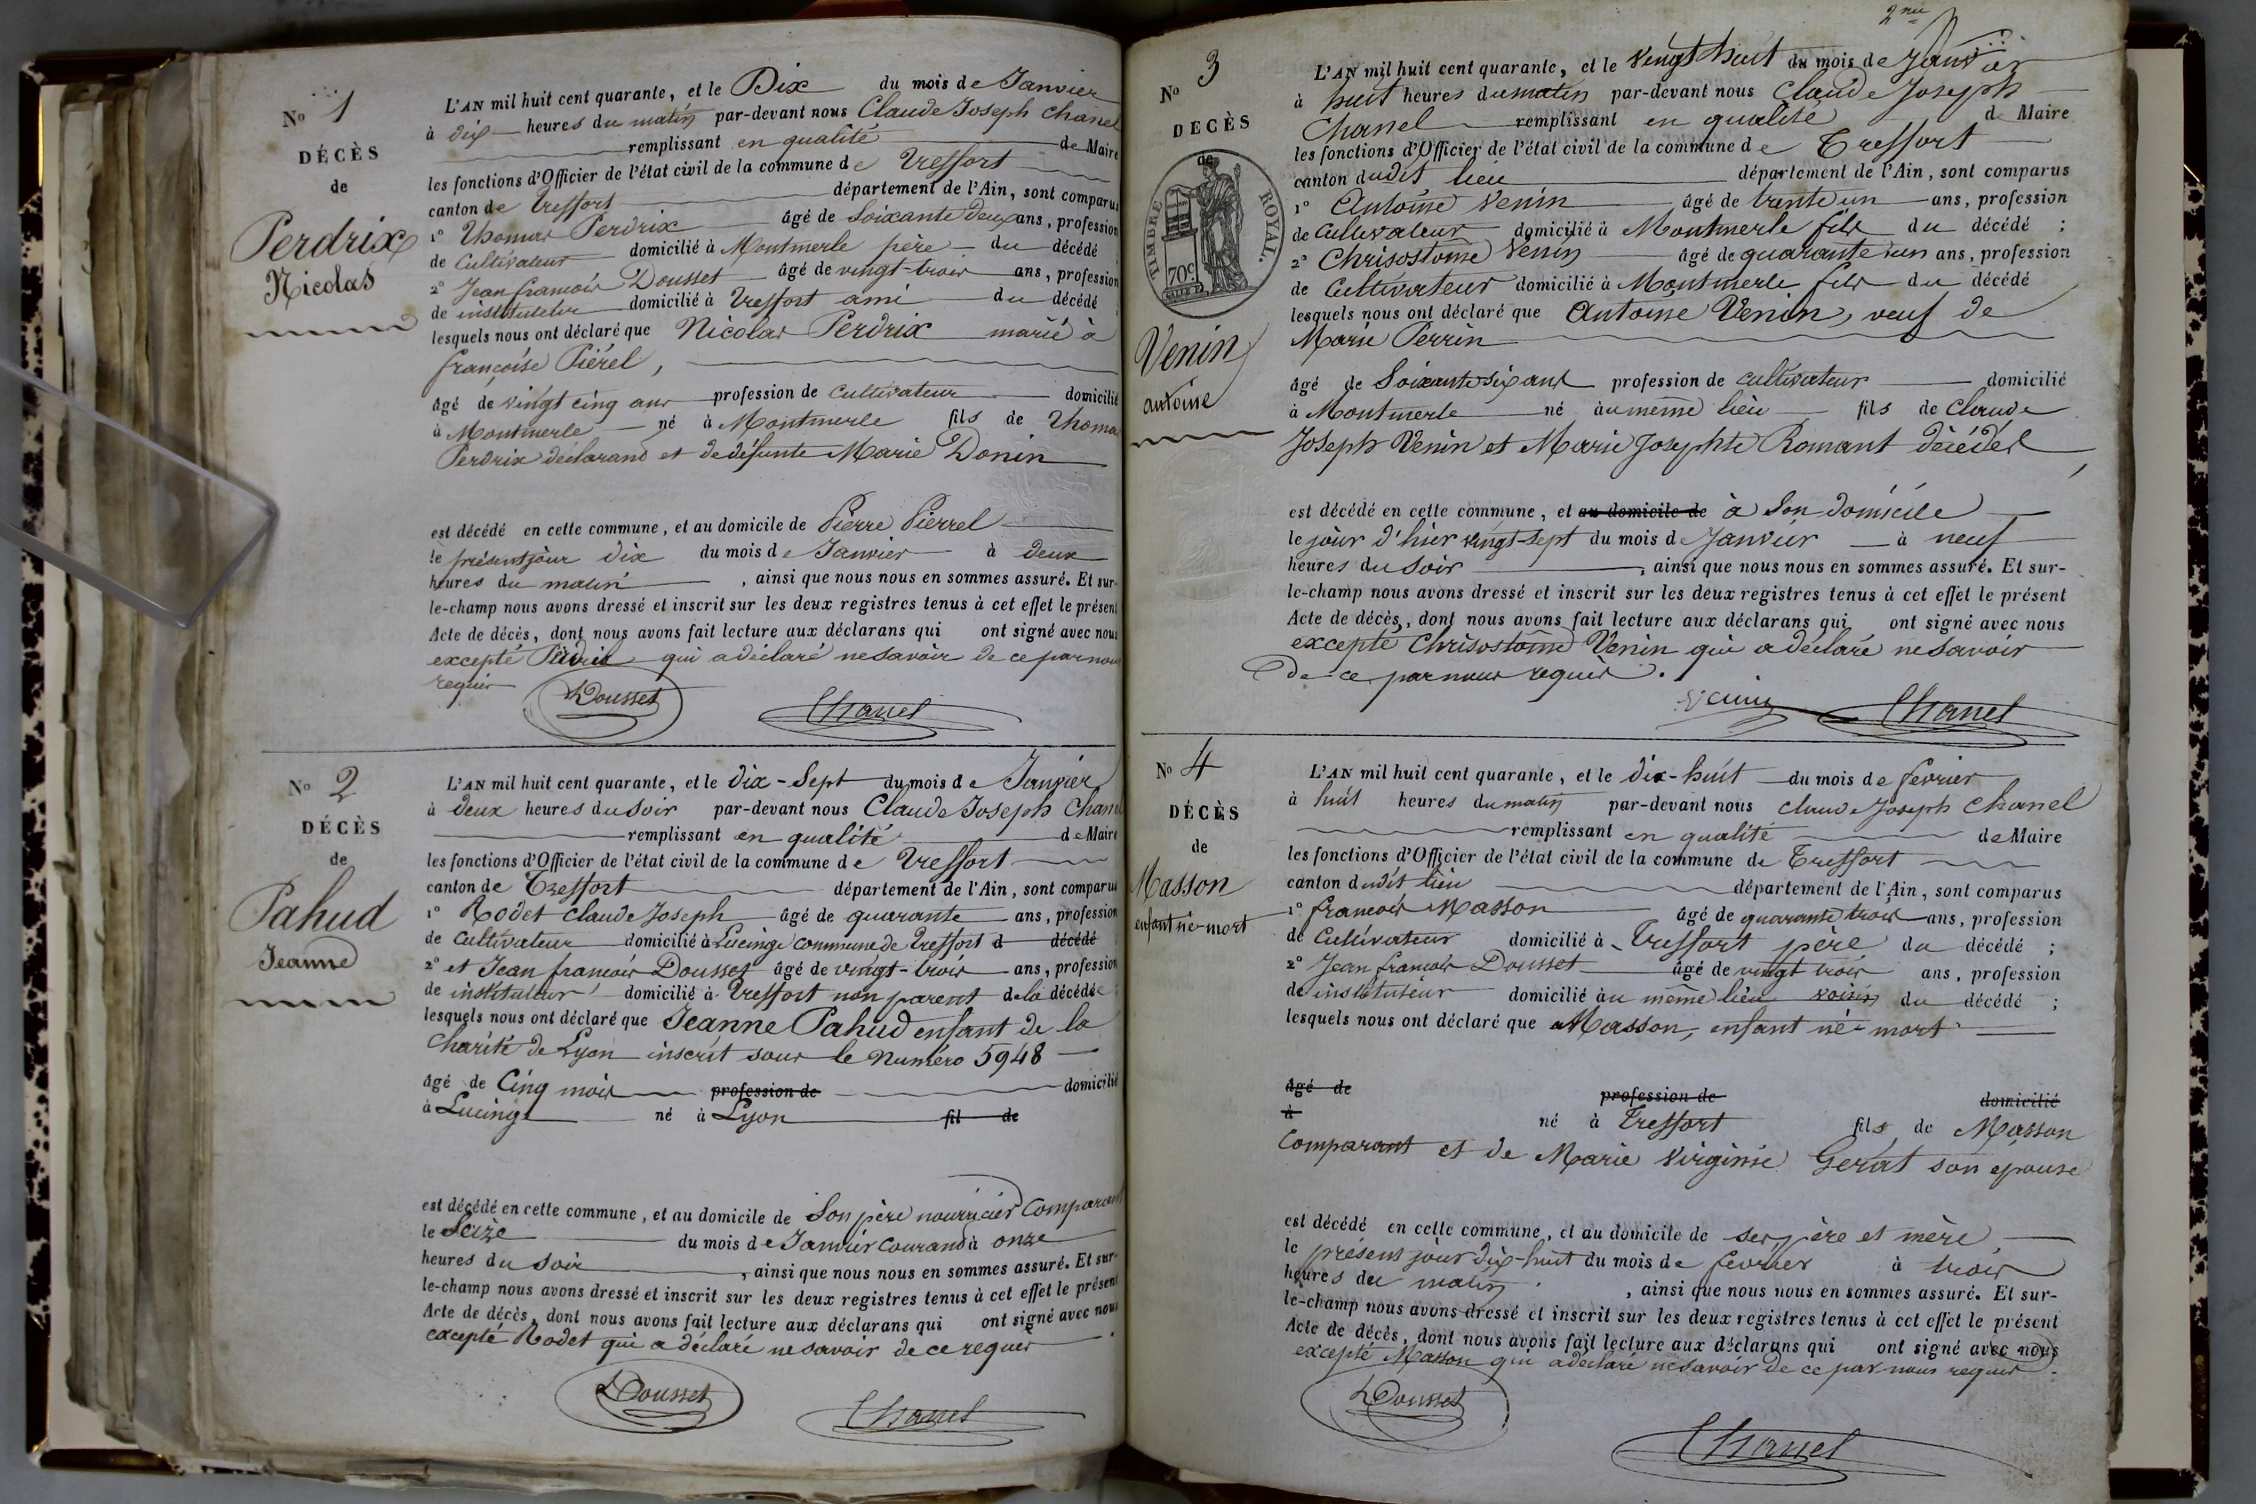 No 1
DÉCÈS
de
Perdrix
Nicolas
L'AN mil huit cent quarante, et le Dix du mois de Janvier
à dix heures du matin par-devant nous Claude Joseph Chanel
remplissant en qualité de Maire
les fonctions d'Officier de l'état civil de la commune de Treffort
canton de Treffort département de l'Ain, sont comparus
1° Thomas Perdrix âgé de Soixante deux ans, profession
de Cultivateur domicilié à Montmerle père du décédé
2° Jean francois Dousset âgé de vingt-trois ans, profession
de instituteur domicilié à Treffort ami du décédé
lesquels nous ont déclaré que Nicolas Perdrix marié à
françoise Piérel,
âgé de vingt cinq ans profession de Cultivateur domicilié
à Montmerle né à Montmerle fils de Thomas
Perdrix déclarand et de défunte Marie Donin
est décédé en cette commune, et au domicile de Pierre Pierrel
le présent jour dix du mois de Janvier à deux
heures du matin, ainsi que nous nous en sommes assuré. Et sur-
le-champ nous avons dressé et inscrit sur les deux registres tenus à cet effet le présent
Acte de décès, dont nous avons fait lecture aux déclarans qui ont signé avec nous
excepté qui a déclaré ne savoir de ce par nous
requis
Dousset Chanel
No 2
DÉCÈS
de
Pahud
Jeanne
L'AN mil huit cent quarante, et le dix-Sept du mois de Janvier
à deux heures du Soir par-devant nous Claude Joseph Chanel
remplissant en qualité de Maire
les fonctions d'Officier de l'état civil de la commune de Treffort
canton de Treffort département de l'Ain, sont comparus
1° Rodet Claude Joseph âgé de quarante ans, profession
de Cultivateur domicilié à Lucinge commune de Treffort d décédé
2° et Jean francois Dousset âgé de vingt-trois ans, profession
de instituteur domicilié à Treffort non parent de la décédée
lesquels nous ont déclaré que Jeanne Pahud enfant de la
Charité de Lyon inscrit sous le Numéro 5948
âgé de Cinq mois profession de domicilié
à Lucinge né à Lyon fil de
est décédé en cette commune, et au domicile de Son père nourricier Comparant
le Seize du mois de Janvier Courand à onze
heures du Soir, ainsi que nous nous en sommes assuré. Et sur-
le-champ nous avons dressé et inscrit sur les deux registres tenus à cet effet le présent
Acte de décès, dont nous avons fait lecture aux déclarans qui ont signé avec nous
excepté Rodet qui a déclaré ne savoir de ce requis
Dousset Chanel
2me
No 3
DECÈS
de
TIMBRE ROYAL.
70c
Venin
antoine
L'AN mil huit cent quarante, et le Vingt huit du mois de Janvier
à huit heures du matin par-devant nous Claude Joseph
Chanel remplissant en qualité de Maire
les fonctions d'Officier de l'état civil de la commune de Treffort
canton dudit lieu département de l'Ain, sont comparus
1° Antoine Venin âgé de trente un ans, profession
de Cultivateur domicilié à Montmerle fils du décédé ;
2° Chrisostôme Venin âgé de quarante un ans, profession
de Cultivateur domicilié à Montmerle fils du décédé
lesquels nous ont déclaré que Antoine Venin, veuf de
Marie Perrin
âgé de Soixante six ans profession de cultivateur domicilié
à Montmerle né au même lieu fils de Claude
Joseph Venin et Marie Josephte Romant décédés,
est décédé en cette commune, et au domicile de à Son domicile
le jour d'hier vingt-sept du mois de Janvier à neuf
heures du Soir, ainsi que nous nous en sommes assuré. Et sur-
le-champ nous avons dressé et inscrit sur les deux registres tenus à cet effet le présent
Acte de décès, dont nous avons fait lecture aux déclarans qui ont signé avec nous
excepté Chrisostôme Venin qui a déclaré ne savoir
de ce par nous requis.
Venin Chanel
No 4
DÉCÈS
de
Masson
enfant né-mort
L'AN mil huit cent quarante, et le dix-huit du mois de fevrier
à huit heures du matin par-devant nous Claude Joseph Chanel
remplissant en qualité de Maire
les fonctions d'Officier de l'état civil de la commune de Treffort
canton dudit lieu département de l'Ain, sont comparus
1° francois Masson âgé de quarante trois ans, profession
de Cultivateur domicilié à Treffort père du décédé ;
2° Jean francois Dousset âgé de vingt trois ans, profession
de instituteur domicilié au même lieu voisin du décédé ;
lesquels nous ont déclaré que Masson, enfant né-mort
âgé de profession de domicilié
à né à Treffort fils de Masson
Comparant et de Marie Virginie Gerat son epouse
est décédé en cette commune, et au domicile de ses père et mère,
le présent jour dix-huit du mois de février à trois
heures du matin, ainsi que nous nous en sommes assuré. Et sur-
le-champ nous avons dressé et inscrit sur les deux registres tenus à cet effet le présent
Acte de décès, dont nous avons fait lecture aux déclarans qui ont signé avec nous
excepté Masson qui a déclaré ne savoir de ce par nous requis.
Dousset Chanel